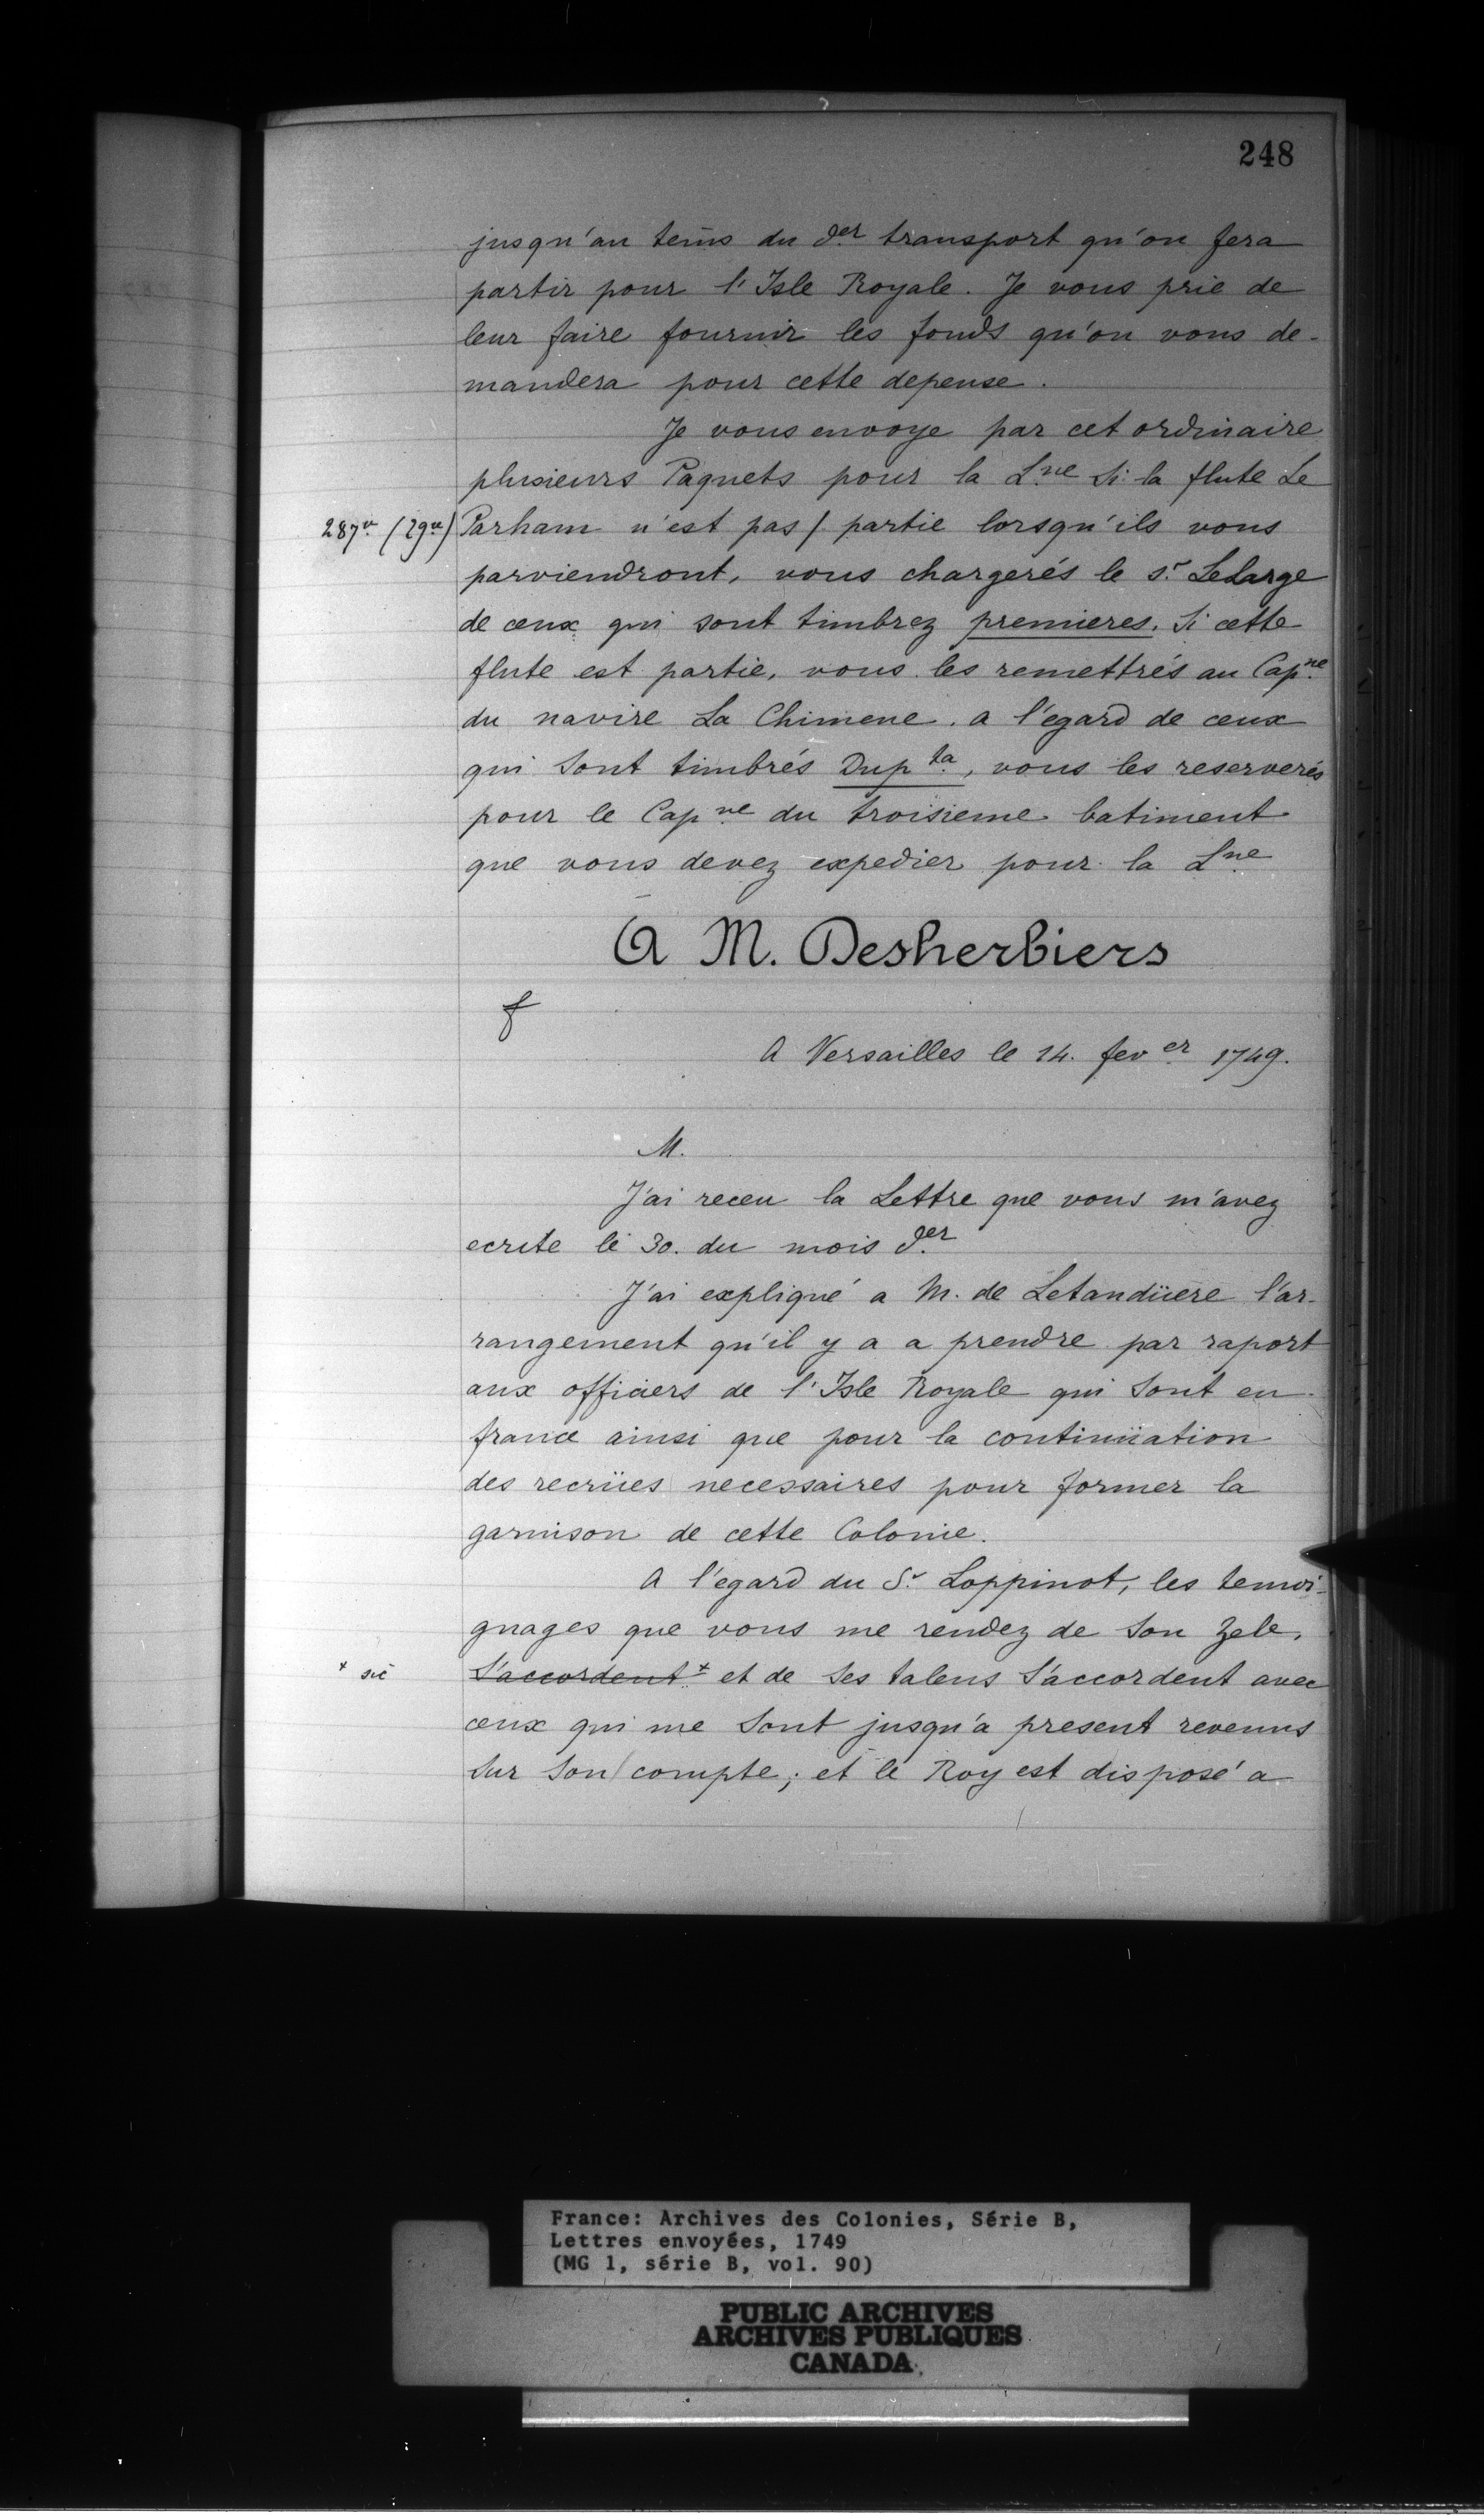 248
jusqu'au tems du der transport qu'on fera
partir pour l'Isle Royale. Je vous prie de
leur faire fournir les fonds qu'on vous de-
mandera pour cette depense.
Je vous envoye par cet ordinaire
plusieurs Paquets pour la Lne Si la flute Le
287v (29v) Parham n'est pas / partie lorsqu'ils vous
parviendront, vous chargerés le sr. Lelarge
de ceux qui sont timbrez premieres. Si cette
flute est partie, vous les remettrés au Capne
du navire La Chimene. a l'egard de ceux
qui sont timbrés Dupta, vous les reserverés
pour le Capne du troisieme batiment
que vous devez expedier pour la Lne
A M. Desherbiers
f
A Versailles le 14. fever 1749.
M.
J'ai receu la Lettre que vous m'avez
ecrite le 30. du mois der
J'ai expliqué a M. de Letandüere l'ar-
rangement qu'il y a a prendre par raport
aux officiers de l'Isle Royale qui sont en
france ainsi que pour la continüation
des recrües necessaires pour former la
garnison de cette Colonie.
A l'egard du Sr Loppinot, les temoi-
gnages que vous me rendez de son zele,
+ sic S'accordent + et de ses talens s'accordent avec
ceux qui me sont jusqu'a present revenus
sur son / compte; et le Roy est disposé a
France: Archives des Colonies, Série B,
Lettres envoyées, 1749
(MG 1, série B, vol. 90)
PUBLIC ARCHIVES
ARCHIVES PUBLIQUES
CANADA